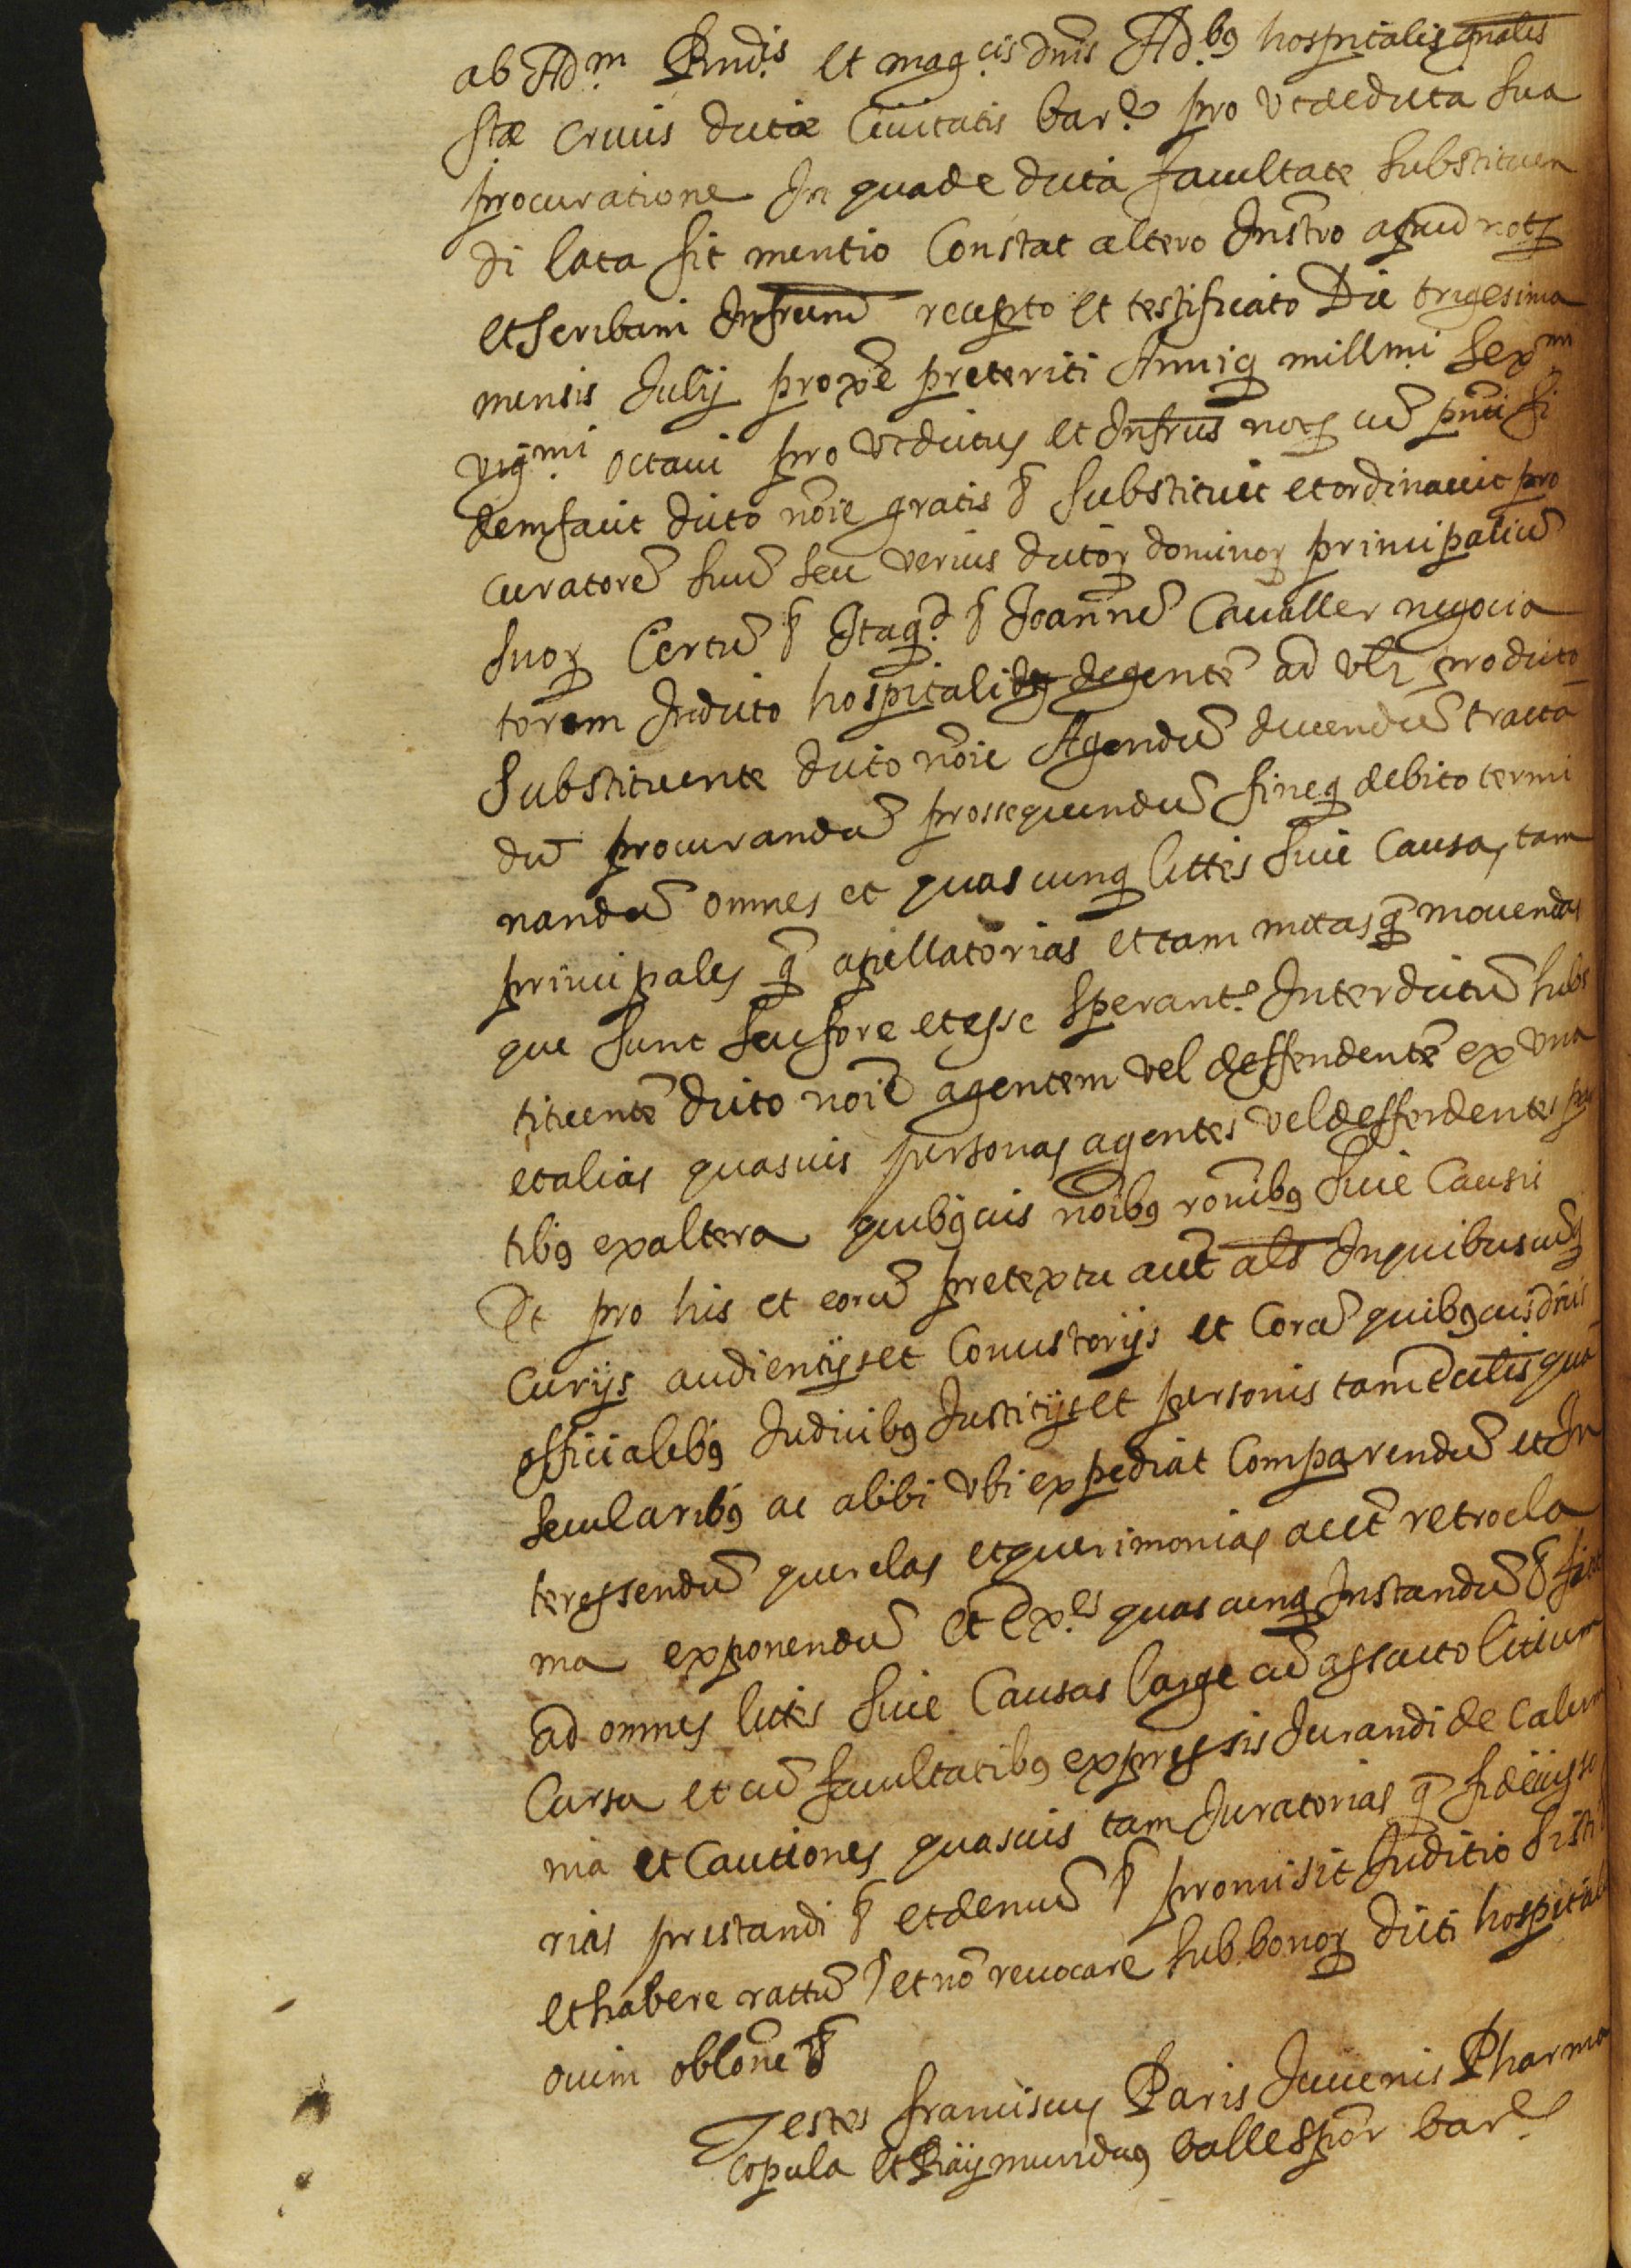 ab Adm. Rndis. et magcis. dnis Adb9. hospitalis gnalis
stæ crucis dictæ Civitatis Bare. pro ut de dicta sua
procuratione In qua de dicta facultate substituen
di lata fit mentio Constat altero Instro apud not
et scribam Infrum recepto et testificato Die trigesima
mensis Julij proxe preteriti Anniq millmi. sexmi.
vigmi. octavi pro ut dictus et Infrus not cu pnti fi
dem facit dicto noie gratis & substituit et ordinavit pro
curatore suu seu verius dictor dominor principaliu
suor Certu & Itaqd. & Joanne Cavaller negocia
torem In dicto hospitali degente ad
substituente dicto noie Agendu ducendu tracta
du procurandu prossequendu fineq debito termi
nandu omnes et quascunq littes sive causas tam
principales q apellatorias et tam motas q movendas
que sunt seu fore et esse sperant. Inter dictu subs
tituente dicto noie agentem vel deffendente ex una
et alias quasvis personas agentes vel deffendentes par
tib9 ex altera quib9vis noib9 ronib9 sive causis
Et pro his et eoru pretextu aut als In quibuscuq
Curijs audientijs et Concistorijs et Cora quib9vis dnis
officialib9 Judicib9 Justitijs et personis tam ecctis qua
secularib9 ac alibi ubi expediat comparendu et In
teressendu querelas et querimonias aut retrocla
ma exponendu et Exes. quascunq Instandu & fiat
ad omnes littes sive Causas large cu assueto litium
Cursu et cu facultatib9 expressis Jurandi de calum
nia et Cautiones quasvis tam Juratorias q fideiusso
rias prestandi & et demu & promisit Juditio sisti
et habere rattu & et no revocare sub bonor dicti hospitalis
oium oblone &
Testes franciscus Paris Juvenis Pharma
copula et Raymundus Vallespir bare.